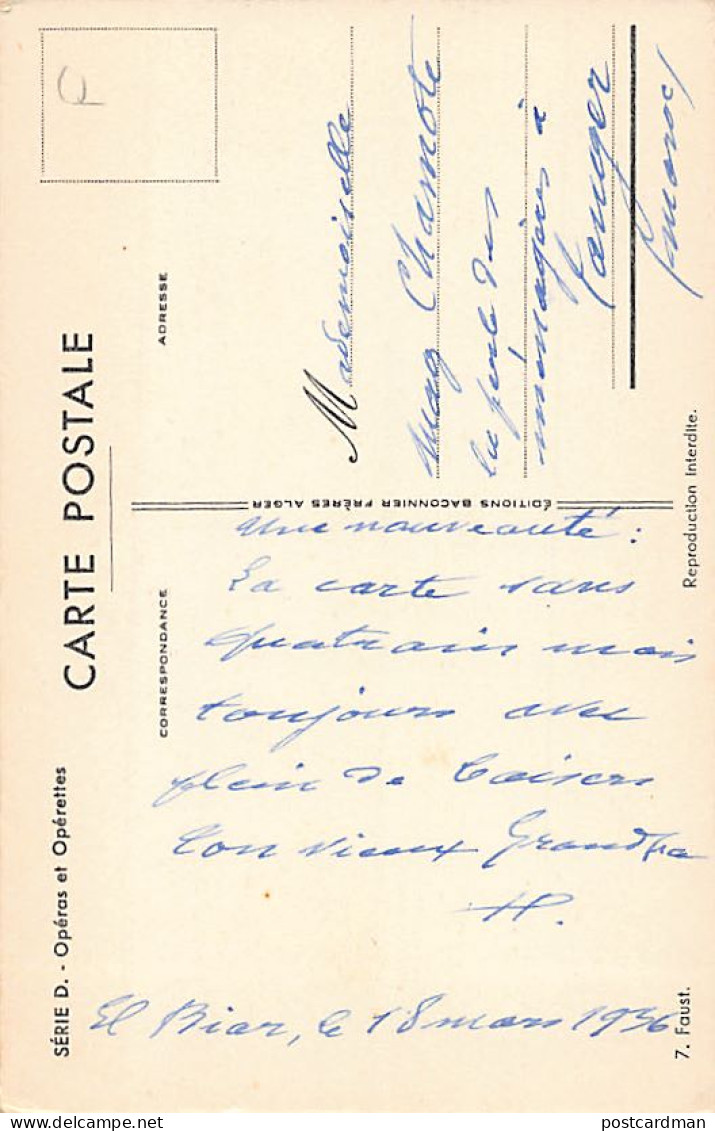 SÉRIE D. - Opéras et Opérettes
CARTE POSTALE
F
CORRESPONDANCE
ADRESSE
Une nouveauté :
La carte sans
quatrain mais
toujours avec
plein de baisers
Ton vieux Grandpa
H.
El Biar, le 18 mars 1936
ÉDITIONS BACONNIER FRÈRES ALGER
Mademoiselle
Mag
La perle des
ménagères à
Tanger
Maroc
7. Faust.
Reproduction Interdite.
postcardman